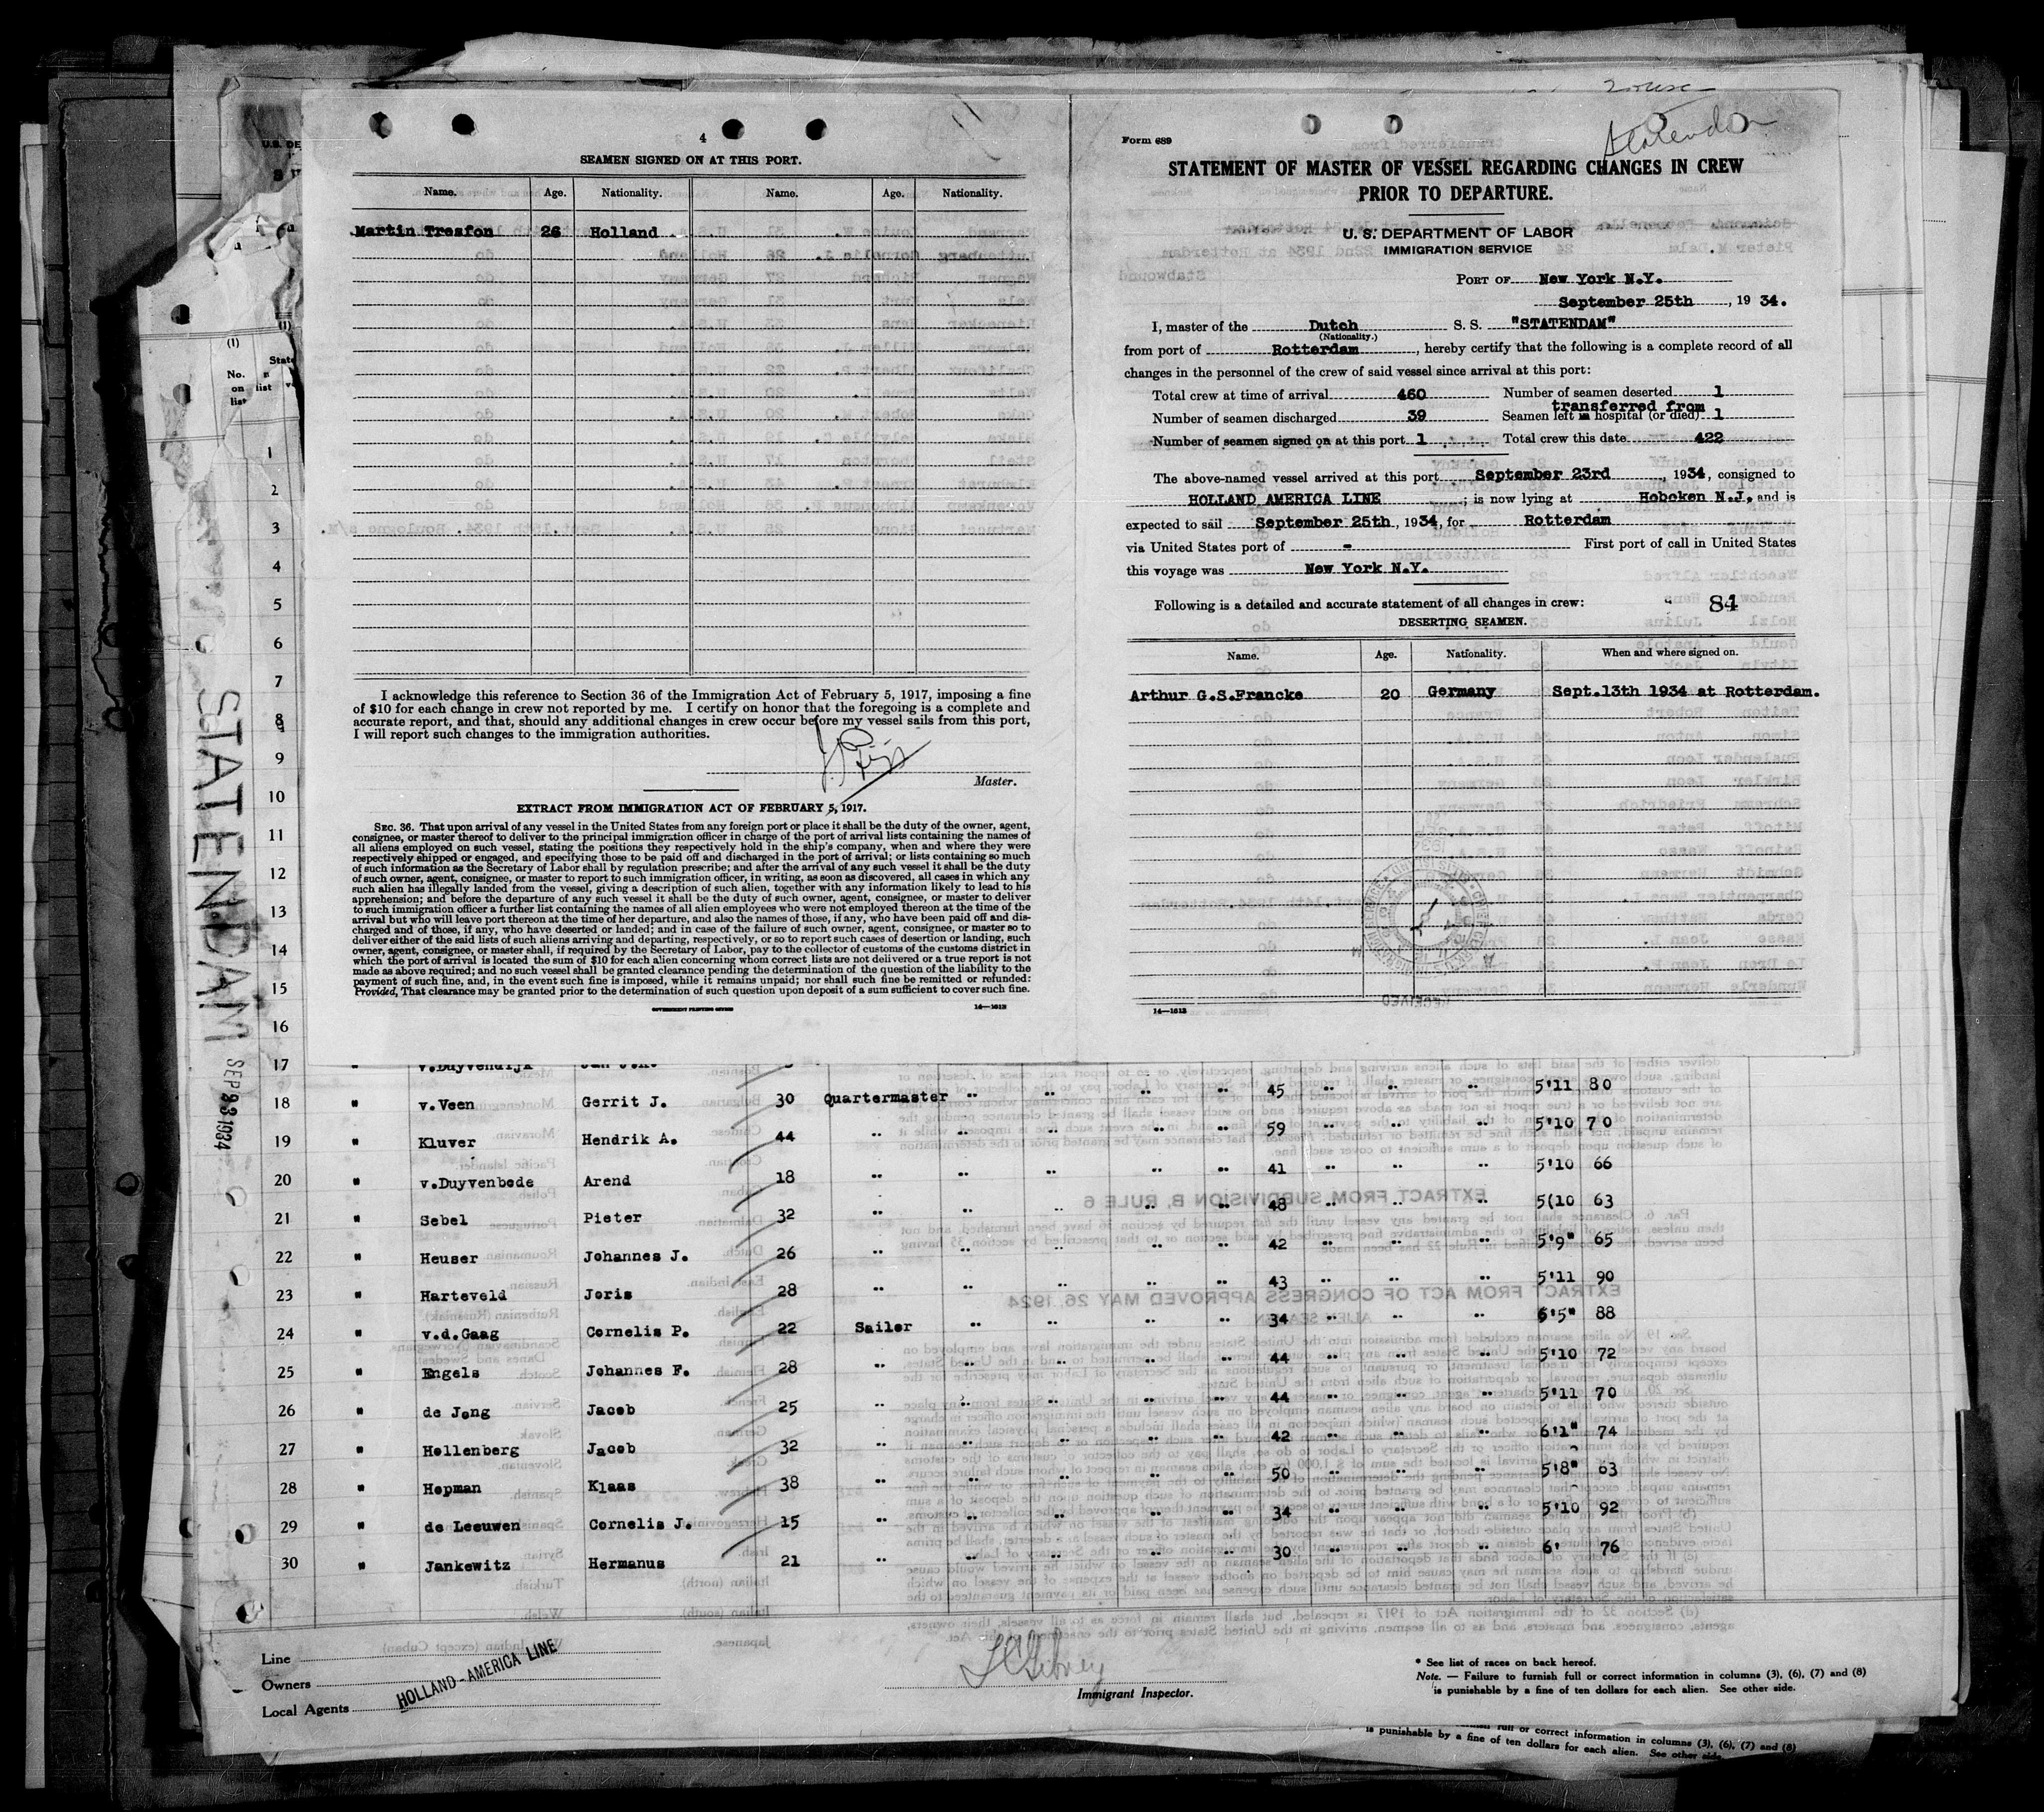 4
SEAMEN SIGNED ON AT THIS PORT.
Name. Age. Nationality. Name. Age. Nationality.
Martin Tresfon 26 Holland
I acknowledge this reference to Section 36 of the Immigration Act of February 5, 1917, imposing a fine
of $10 for each change in crew not reported by me. I certify on honor that the foregoing is a complete and
accurate report, and that, should any additional changes in crew occur before my vessel sails from this port,
I will report such changes to the immigration authorities.
Master.
EXTRACT FROM IMMIGRATION ACT OF FEBRUARY 5, 1917.
SEC. 36. That upon arrival of any vessel in the United States from any foreign port or place it shall be the duty of the owner, agent,
consignee, or master thereof to deliver to the principal immigration officer in charge of the port of arrival lists containing the names of
all aliens employed on such vessel, stating the positions they respectively hold in the ship's company, when and where they were
respectively shipped or engaged, and specifying those to be paid off and discharged in the port of arrival; or lists containing so much
of such information as the Secretary of Labor shall by regulation prescribe; and after the arrival of any such vessel it shall be the duty
of such owner, agent, consignee, or master to report to such immigration officer, in writing, as soon as discovered, all cases in which any
such alien has illegally landed from the vessel, giving a description of such alien, together with any information likely to lead to his
apprehension; and before the departure of any such vessel it shall be the duty of such owner, agent, consignee, or master to deliver
to such immigration officer a further list containing the names of all alien employees who were not employed thereon at the time of the
arrival but who will leave port thereon at the time of her departure, and also the names of those, if any, who have been paid off and dis-
charged and of those, if any, who have deserted or landed; and in case of the failure of such owner, agent, consignee, or master so to
deliver either of the said lists of such aliens arriving and departing, respectively, or so to report such cases of desertion or landing, such
owner, agent, consignee, or master shall, if required by the Secretary of Labor, pay to the collector of customs of the customs district in
which the port of arrival is located the sum of $10 for each alien concerning whom correct lists are not delivered or a true report is not
made as above required; and no such vessel shall be granted clearance pending the determination of the question of the liability to the
payment of such fine, and, in the event such fine is imposed, while it remains unpaid; nor shall such fine be remitted or refunded:
Provided, That clearance may be granted prior to the determination of such question upon deposit of a sum sufficient to cover such fine.
GOVERNMENT PRINTING OFFICE 14—1613
Statendam
Form 689
STATEMENT OF MASTER OF VESSEL REGARDING CHANGES IN CREW
PRIOR TO DEPARTURE.
U. S. DEPARTMENT OF LABOR
IMMIGRATION SERVICE
PORT OF New York N.Y.
September 25th, 1934.
I, master of the Dutch S. S. "STATENDAM"
(Nationality.)
from port of Rotterdam, hereby certify that the following is a complete record of all
changes in the personnel of the crew of said vessel since arrival at this port:
Total crew at time of arrival 460 Number of seamen deserted 1
transferred from
Number of seamen discharged 39 Seamen left in hospital (or died) 1
Number of seamen signed on at this port 1 Total crew this date 422
The above-named vessel arrived at this port September 23rd, 1934, consigned to
HOLLAND AMERICA LINE; is now lying at Hoboken N.J. and is
expected to sail September 25th, 1934, for Rotterdam
via United States port of - First port of call in United States
this voyage was New York N.Y.
Following is a detailed and accurate statement of all changes in crew: 84
DESERTING SEAMEN.
Name. Age. Nationality. When and where signed on.
Arthur G.S.Francke 20 Germany Sept.13th 1934 at Rotterdam.
14—1613
STATENDAM SEP 23 1934
(1)
No. on list
1
2
3
4
5
6
7
8
9
10
11
12
13
14
15
16
17 " v.Duyvendijk Jan J.H.
18 " v.Veen Gerrit J. 30 Quartermaster " " " " 45 " " " 5'11 80
19 " Kluver Hendrik A. 44 " " " " " 59 " " " 5'10 70
20 " v.Duyvenbode Arend 18 " " " " " 41 " " " 5'10 66
21 " Sebel Pieter 32 " " " " " 48 " " " 5(10 63
22 " Heuser Johannes J. 26 " " " " " 42 " " " 5'9" 65
23 " Harteveld Joris 28 " " " " " 43 " " " 5'11 90
24 " v.d.Gaag Cornelis P. 22 Sailor " " " " 34 " " " 6'5" 88
25 " Engels Johannes F. 28 " " " " " 44 " " " 5'10 72
26 " de Jong Jacob 25 " " " " " 44 " " " 5'11 70
27 " Hollenberg Jacob 32 " " " " " 42 " " " 6'1" 74
28 " Hopman Klaas 38 " " " " " 50 " " " 5'8" 63
29 " de Leeuwen Cornelis J. 15 " " " " " 34 " " " 5'10 92
30 " Jankewitz Hermanus 21 " " " " " 30 " " " 6' 76
Line
Owners
Local Agents
HOLLAND-AMERICA LINE
Immigrant Inspector.
* See list of races on back hereof.
Note. — Failure to furnish full or correct information in columns (3), (6), (7) and (8)
is punishable by a fine of ten dollars for each alien. See other side.
full or correct information in columns (3), (6), (7) and (8)
is punishable by a fine of ten dollars for each alien. See other side.